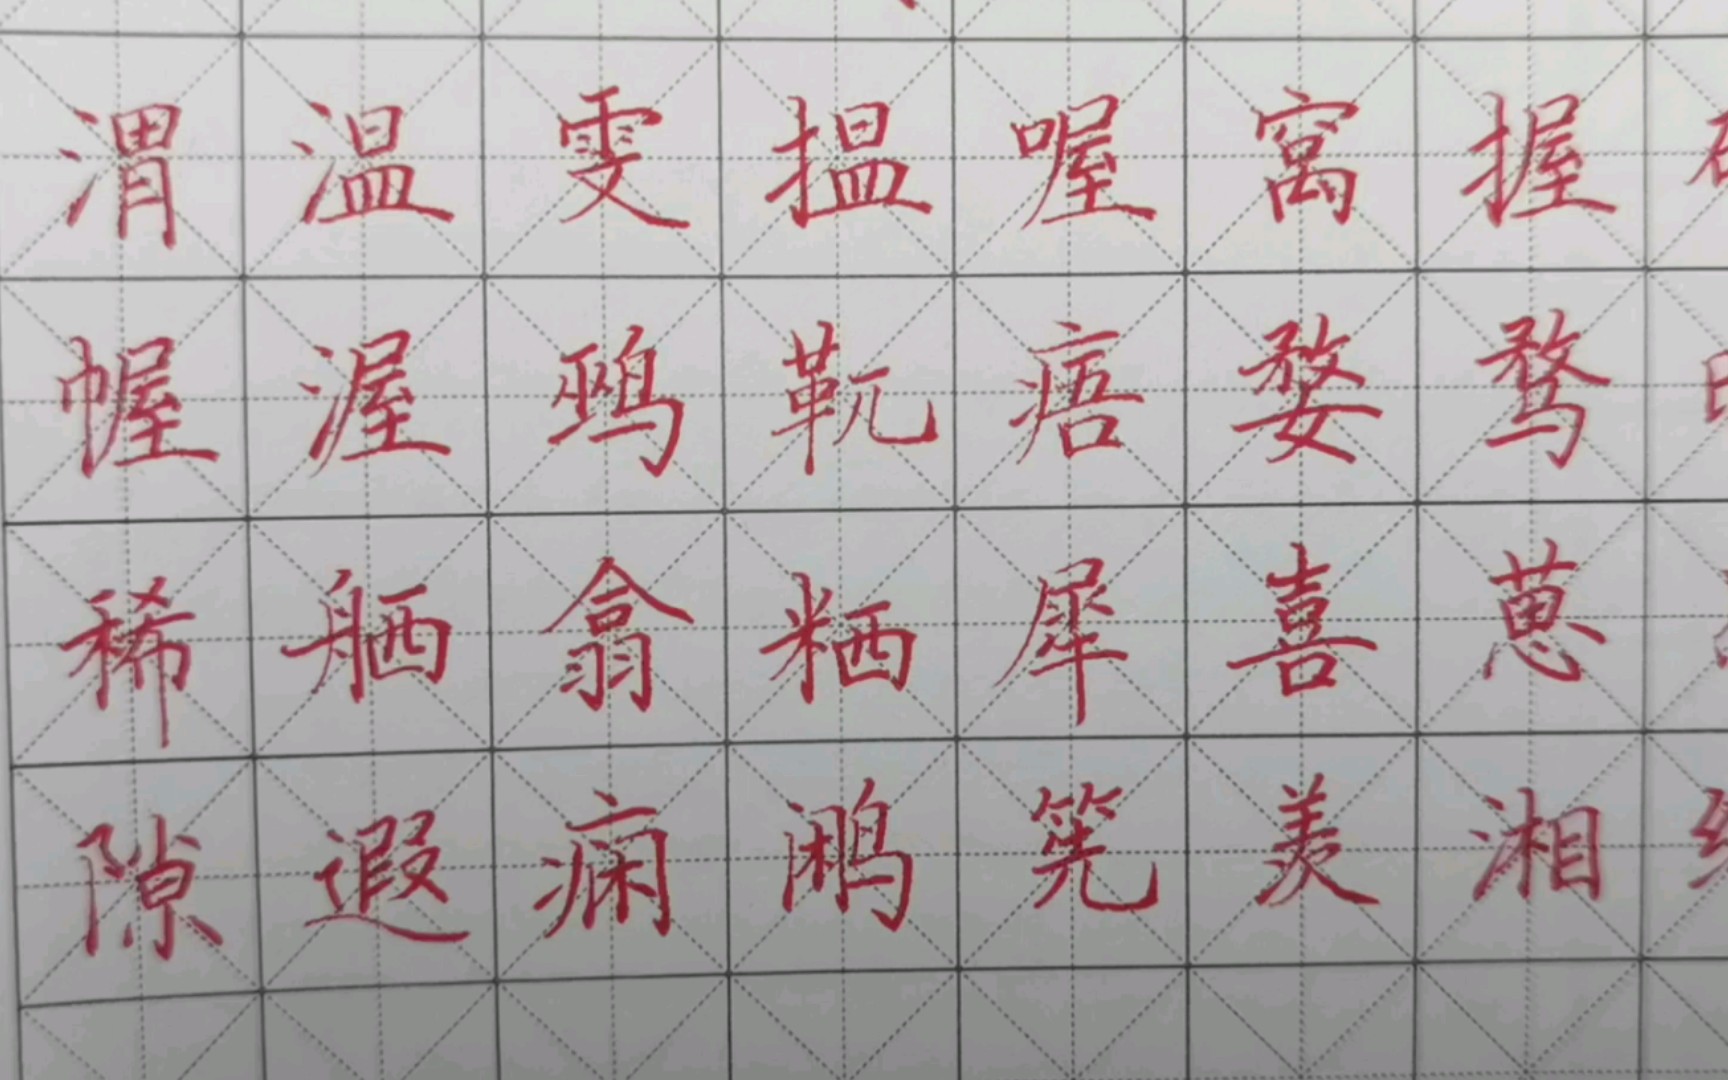 渭温雯揾喔窝握
幄渥鹀靰痦婺骛
稀舾翕粞犀喜葸
隙遐痫鹇筅羡湘